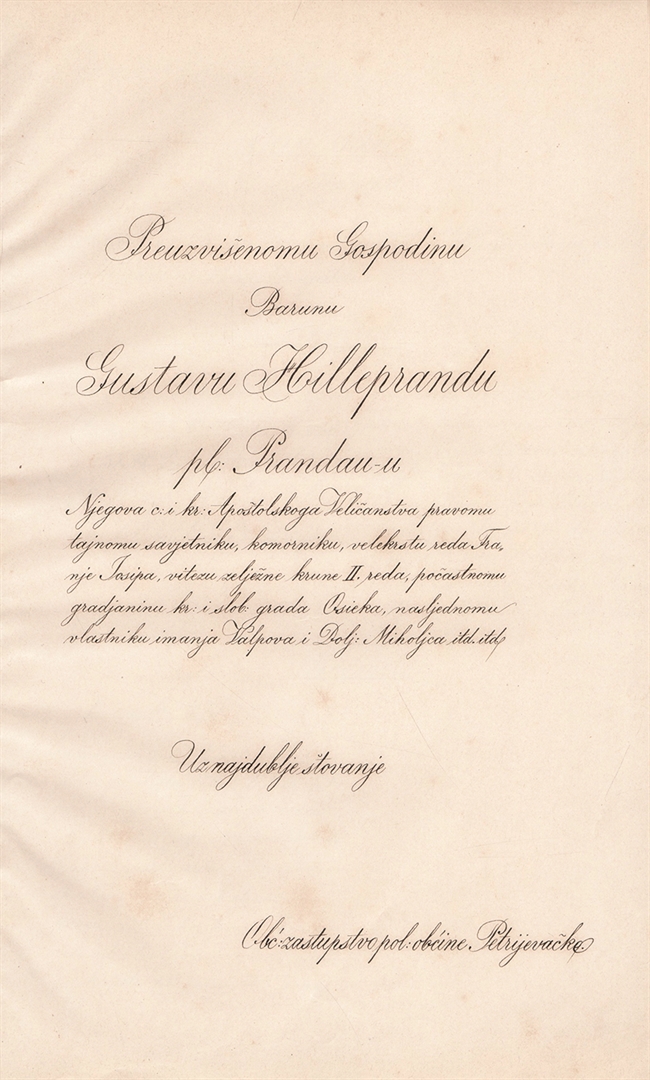 Preuzvišenomu Gospodinu
Barunu
Gustavu Hilleprandu
pl: Prandau-u
Njegova c: i kr: Apoštolskoga Veličanstva pravomu
tajnomu savjetniku, komorniku, velekrstu reda Fra,
nje Josipa, vitezu zelježne krune II. reda, počastnomu
gradjaninu kr: i slob: grada Osieka, nasljednomu
vlastniku imanja Valpova i Dolj: Miholjca itd. itd.
Uz najdublje štovanje
Obć: zastupstvo pol: obćine Petrijevačke.